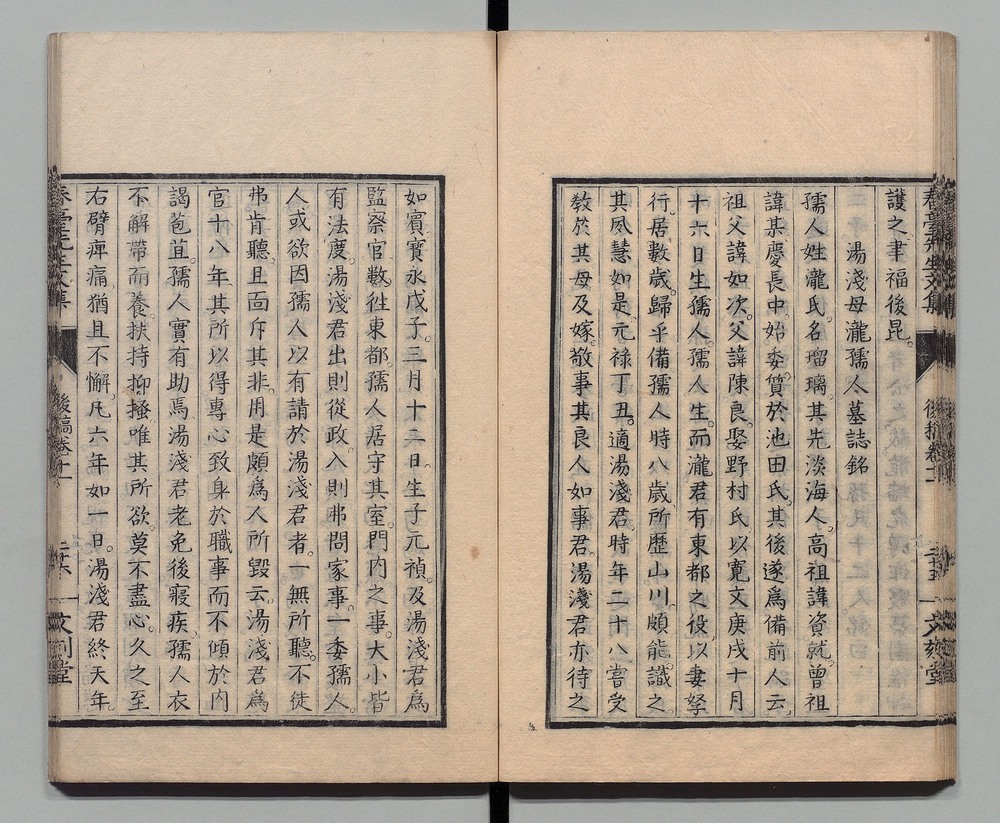 護之聿福後昆。
湯淺母瀧孺人墓誌銘
孺人姓瀧氏。名瑠璃。其先淡海人。高祖諱資就。曾祖
諱某。慶長中。始委質於池田氏。其後遂爲備前人云。
祖父諱如次。父諱陳良。娶野村氏。以寬文庚戌十月
十六日生孺人。孺人生。而瀧君有東都之役。以妻孥
行。居數歲。歸乎備。孺人時八歲。所歷山川。頗能識之。
其夙慧如是。元祿丁丑。適湯淺君。時年二十八。嘗受
教於其母。及嫁。敬事其良人如事君。湯淺君亦待之
如賓。寶永戊子。三月十二日。生子元禎。及湯淺君爲
監察官。數徃東都。孺人居守其室。門内之事。大小皆
有法度。湯淺君出則從政。入則弗問家事。一委孺人。
人或欲因孺人以有請於湯淺君者。一無所聽。不徒
弗肯聽。且面斥其非。用是頗爲人所毀云。湯淺君爲
官十八年。其所以得專心致身於職事。而不傾於内
謁苞苴。孺人實有助焉。湯淺君老免後寢疾。孺人衣
不解帶而養。扶持抑搔。唯其所欲。莫不盡心。久之至
右臂痺痛。猶且不懈。凡六年如一日。湯淺君終天年
春臺先生文集
後稿卷十一
二十六